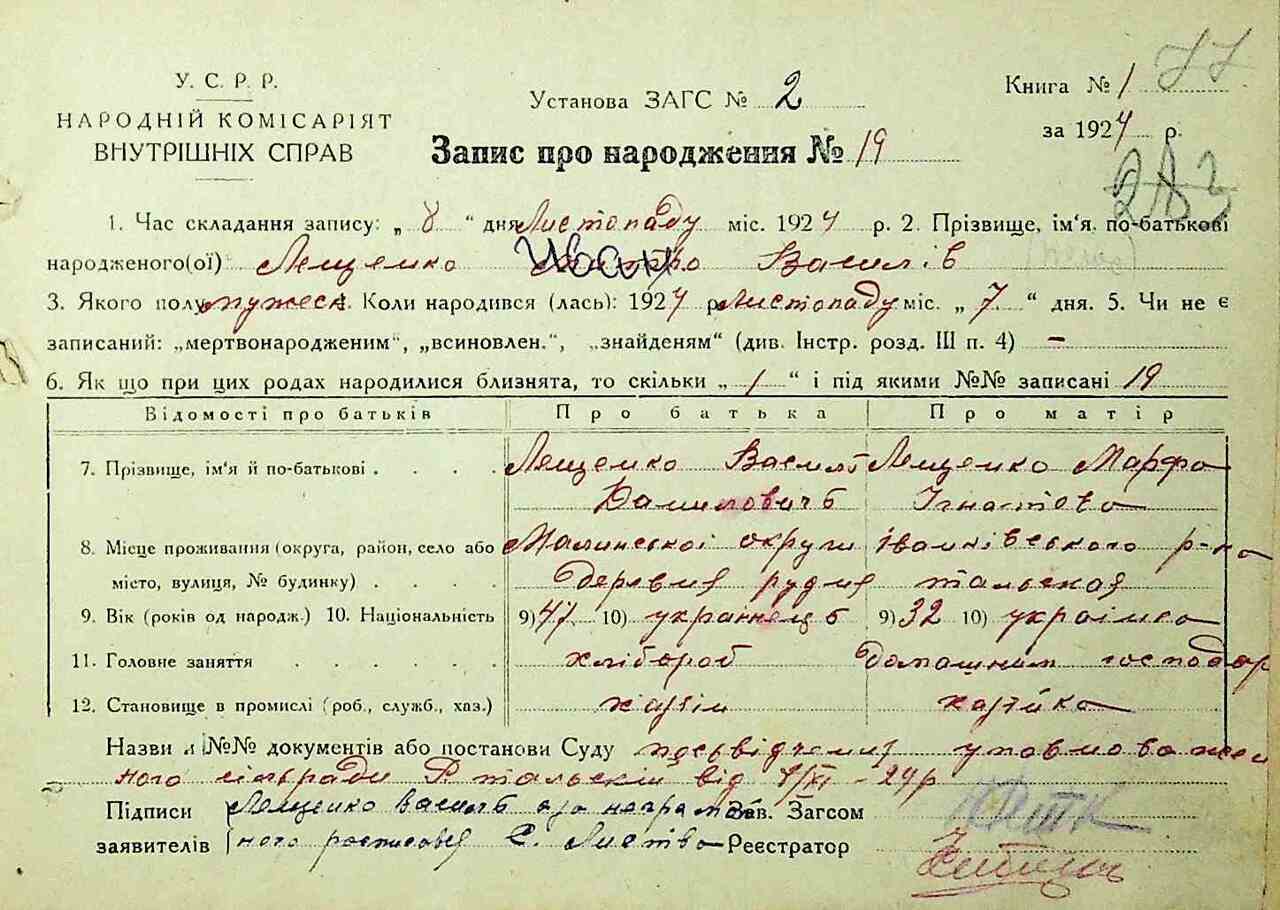 У. С. Р. Р.
НАРОДНІЙ КОМІСАРІЯТ
ВНУТРІШНІХ СПРАВ
Установа ЗАГС № 2
Книга № 1
за 1924 р.
Запис про народження № 19
283
1. Час складання запису: „ 8 “ дня Листопаду міс. 1924 р. 2. Прізвище, ім‘я, по-батькові
народженого(ої) Лещенко Иван Василів
3. Якого полу мужеск. 4. Коли народився (лась): 1924 р. Листопаду міс. „ 7 “ дня. 5. Чи не є
записаний: „мертвонародженим“, „всиновлен.“, „знайденям“ (див. Інстр. розд. III п. 4) –
6. Як що при цих родах народилися близнята, то скільки „ 1 “ і під якими №№ записані 19
Відомості про батьків Про батька Про матір
7. Прізвище, ім‘я й по-батькові . . . . Лещенко Василь Лещенко Марфа
Данилович Ігнатова
8. Місце проживання (округа, район, село або Малинської округи Іванківського р-на
місто, вулиця, № будинку) . . . . деревня рудня тальская
9. Вік (років од народж.) 10. Національність 9) 47 10) українець 9) 32 10) українка
11. Головне заняття . . . . . . хлібороб домашним господар
12. Становище в промислі (роб., служб., хаз.) хазяін хазяйка
Назви й №№ документів або постанови Суду посвідчення уповноважен
ного сільради Р тальскій від 8/XI – 24 р
Підписи Лещенко Василь а за неграмот Зав. Загсом
заявителів ного росписовся Реєстратор